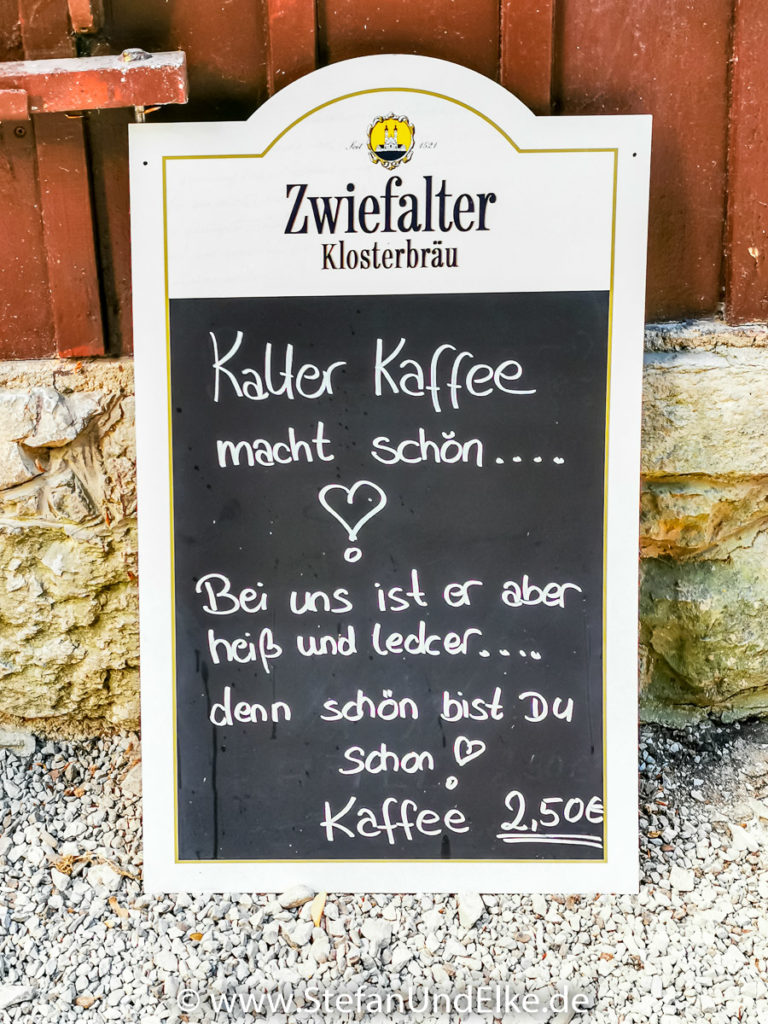 Seit 1521
Zwiefalter
Klosterbräu
Kalter Kaffee
macht schön....
Bei uns ist er aber
heiß und lecker....
denn schön bist Du
schon
Kaffee 2,50€
© www.StefanUndElke.de